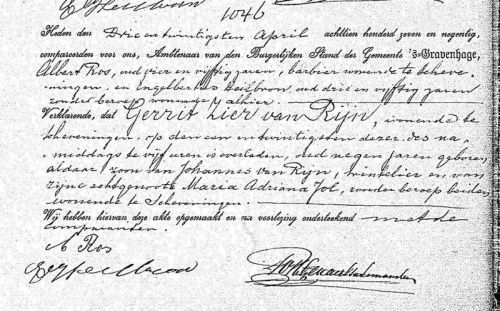 1046
Heden den Drie en twintigsten April achttien honderd zeven en negentig,
compareerden voor ons, Ambtenaar van den Burgerlijken Stand der Gemeente 's-Gravenhage,
Albert Ros, oud vier en vijftig jaren, barbier wonende te Scheve
ningen, en Engelbertus Heilbron, oud drie en vijftig jaren
zonder beroep wonende alhier.
Verklarende, dat Gerrit Zier van Rijn, wonende te
Scheveningen op den een en twintigsten dezer des na
middags te vijf uren is overleden, oud negen jaren geboren
aldaar, zoon van Johannes van Rijn, winkelier en van
zijne echtgenoote Maria Adriana Tol, zonder beroep beiden
wonende te Scheveningen.
Wij hebben hiervan deze akte opgemaakt en na voorlezing onderteekend met de
comparanten.
A Ros